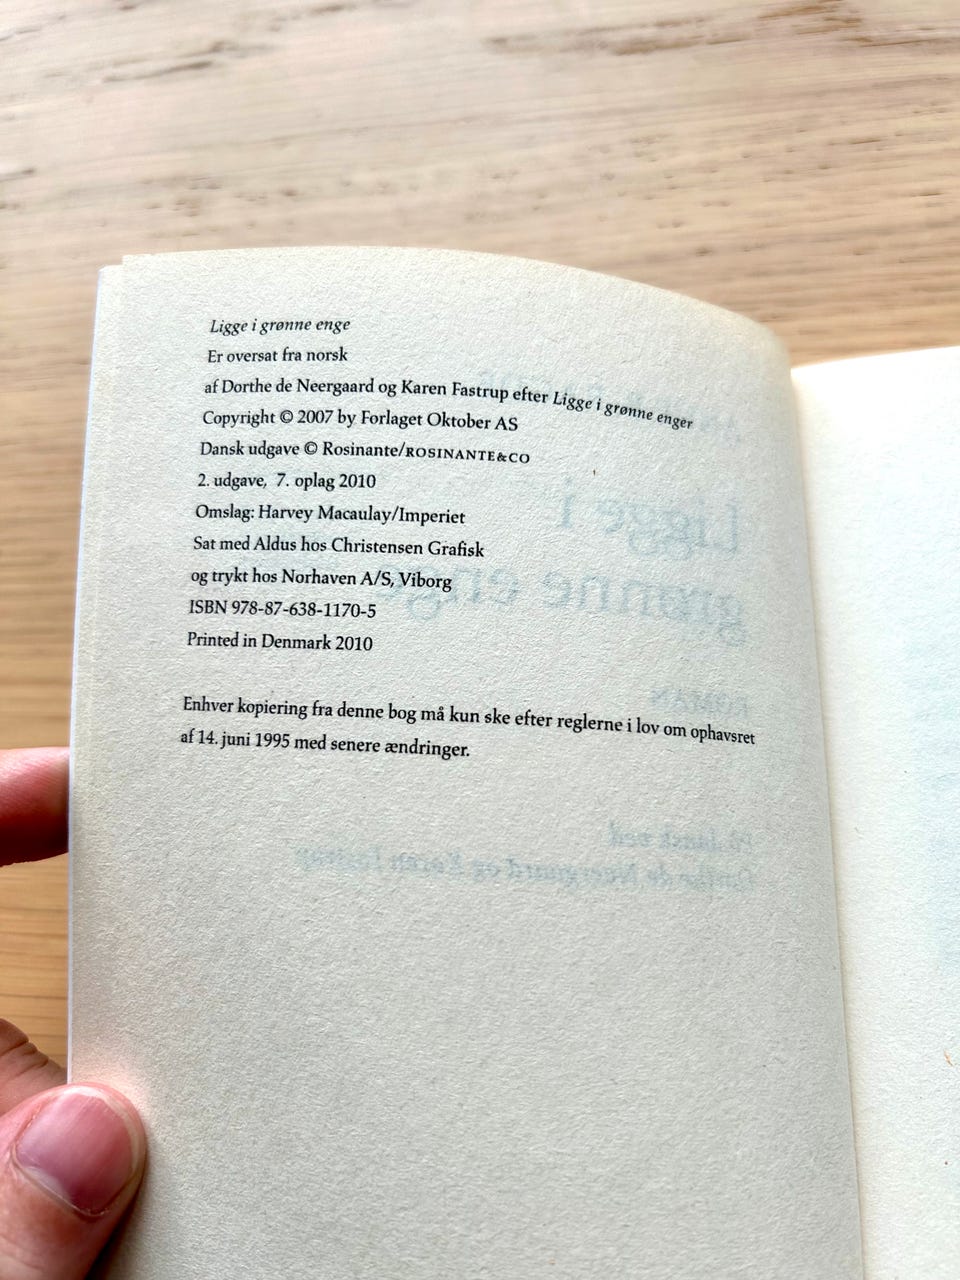 Ligge i grønne enge
Er oversat fra norsk
af Dorthe de Neergaard og Karen Fastrup efter Ligge i grønne enger
Copyright © 2007 by Forlaget Oktober AS
Dansk udgave © Rosinante/ROSINANTE&CO
2. udgave, 7. oplag 2010
Omslag: Harvey Macaulay/Imperiet
Sat med Aldus hos Christensen Grafisk
og trykt hos Norhaven A/S, Viborg
ISBN 978-87-638-1170-5
Printed in Denmark 2010
Enhver kopiering fra denne bog må kun ske efter reglerne i lov om ophavsret
af 14. juni 1995 med senere ændringer.
Ligge i
grønne enge
ROMAN
På dansk ved
Dorthe de Neergaard og Karen Fastrup